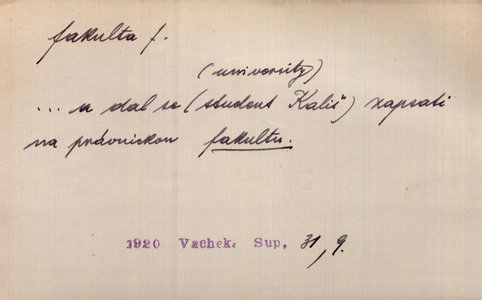 fakulta f.
(university)
... a dal se (student Kališ) zapsati
na právnickou fakultu.
1920 Vachek. Sup, 31, 9.